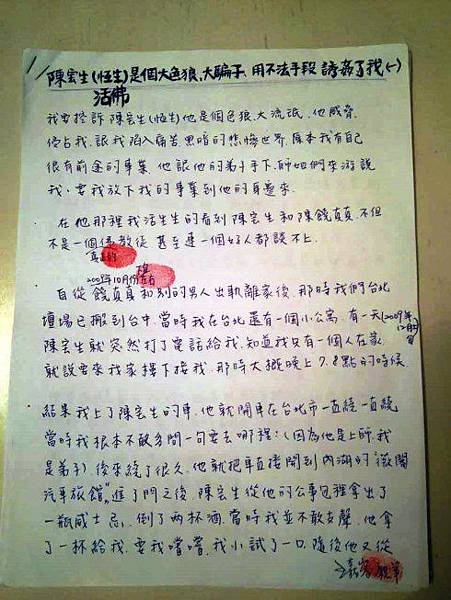 陳宏生(恆生)是個大色狼、大騙子、用不法手段誘姦了我(一)
活佛
我要控訴陳宏生(恆生)他是個色狼、大流氓、他威脅、
侵占我、讓我陷入痛苦黑暗的悲悔世界、原本我有自己
很有前途的事業、他讓他的弟子手下、師姐們來游說
我、要我放下我的事業到他的身邊來.
在他那裡我活生生的看到陳宏生和陳饒真真、不但
不是一個佛教徒甚至連一個好人都談不上.
真正的
2009年10月份左右
自從饒真真和別的男人出軌離家後、那時我們台北
壇場已搬到台中、當時我在台北還有一個小公寓、有一天(2009年12月份)
陳宏生就突然打了電話給我、知道我只有個人在家
就說要來我家樓下接我、那時大概晚上7、8點的時候.
結果我上了陳宏生的車、他就開車在台北市一直繞一直繞
當時我根本不敢多問一句要去哪裡:(因為他是上師、我
是弟子)後來繞了很久、他就把車直接開到內湖的"薇閣
汽車旅館"、進了門之後、陳宏生從他的公事包裡拿出了
一瓶威士忌、倒了兩杯酒、當時我並不敢支聲、他拿
了一杯給我、要我嚐嚐、我小試了一口、隨後他又從